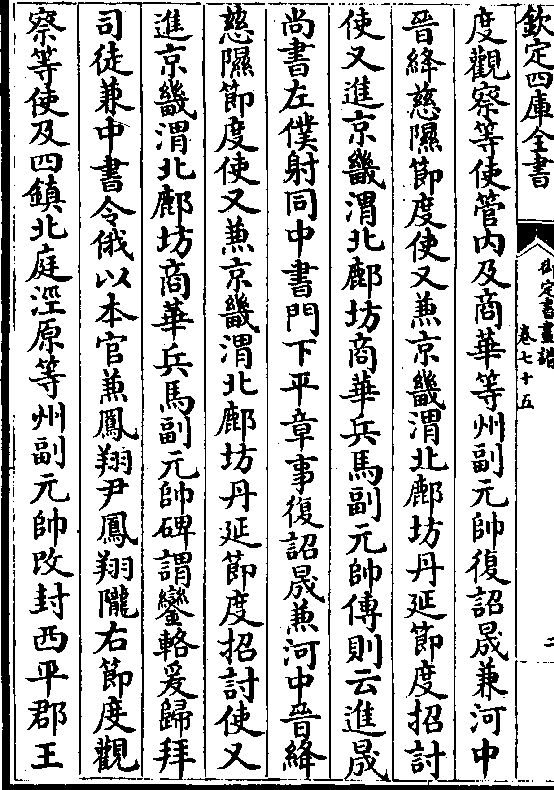 欽定四庫全書
御定書畫譜
卷七十五
二
度觀察等使管内及商華等州副元帥復詔晟兼河中
晉絳慈隰節度使又兼京畿渭北鄜坊丹延節度招討
使又進京畿渭北鄜坊商華兵馬副元帥傳則云進晟
尚書左僕射同中書門下平章事復詔晟兼河中晉絳
慈隰節度使又兼京畿渭北鄜坊丹延節度招討使又
進京畿渭北鄜坊商華兵馬副元帥碑謂鑾輅爰歸拜
司徒兼中書令俄以本官兼鳳翔尹鳳翔隴右節度觀
察等使及四鎮北庭涇原等州副元帥改封西平郡王